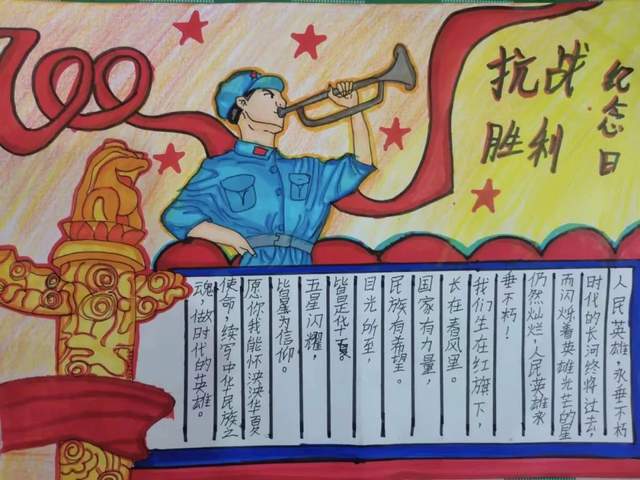 100
抗战
胜利
纪念日
人民英雄,永垂不朽
时代的长河终将过去,
而闪烁着英雄光芒的星
仍然灿烂,人民英雄永
垂不朽!
我们生在红旗下,
长在春风里。
国家有力量,
民族有希望。
目光所至,
皆是华夏。
五星闪耀,
皆星为信仰。
愿你我能怀泱泱华夏
使命,续写中华民族之
魂,做时代的英雄。